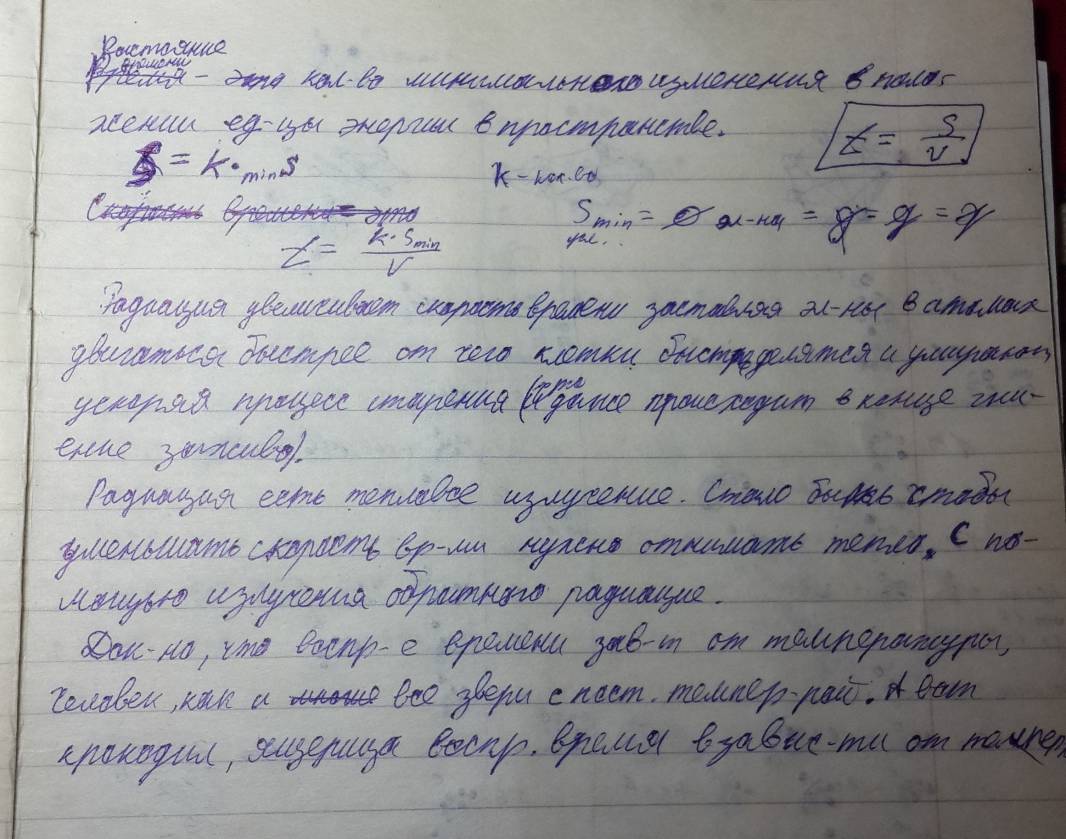 Расстояние
времени
Время - это кол-во минимального изменения в поло-
жении ед-цы энергии в пространстве.
t = S/V
S = k · min S
k - кол-во
Скорость времени = это
S min = эл-на = g = g = g
t = k · S min / V
Радиация увеличивает скорость времени заставляя эл-ны в атомах
двигаться быстрее от чего клетки быстрее делятся и умирают,
ускоряя процесс старения (и это даже происходит в конце гни-
ение заживо).
Радиация есть тепловое излучение. Стало быть чтобы
уменьшать скорость вр-ми нужно отнимать тепло. С по-
мощью излучения обратного радиацие.
Док-но, что воспр-е времени зав-т от температуры,
человек, как и все звери с пост. темпер-рой. А вот
крокодил, ящерица воспр. время в завис-ти от темпер